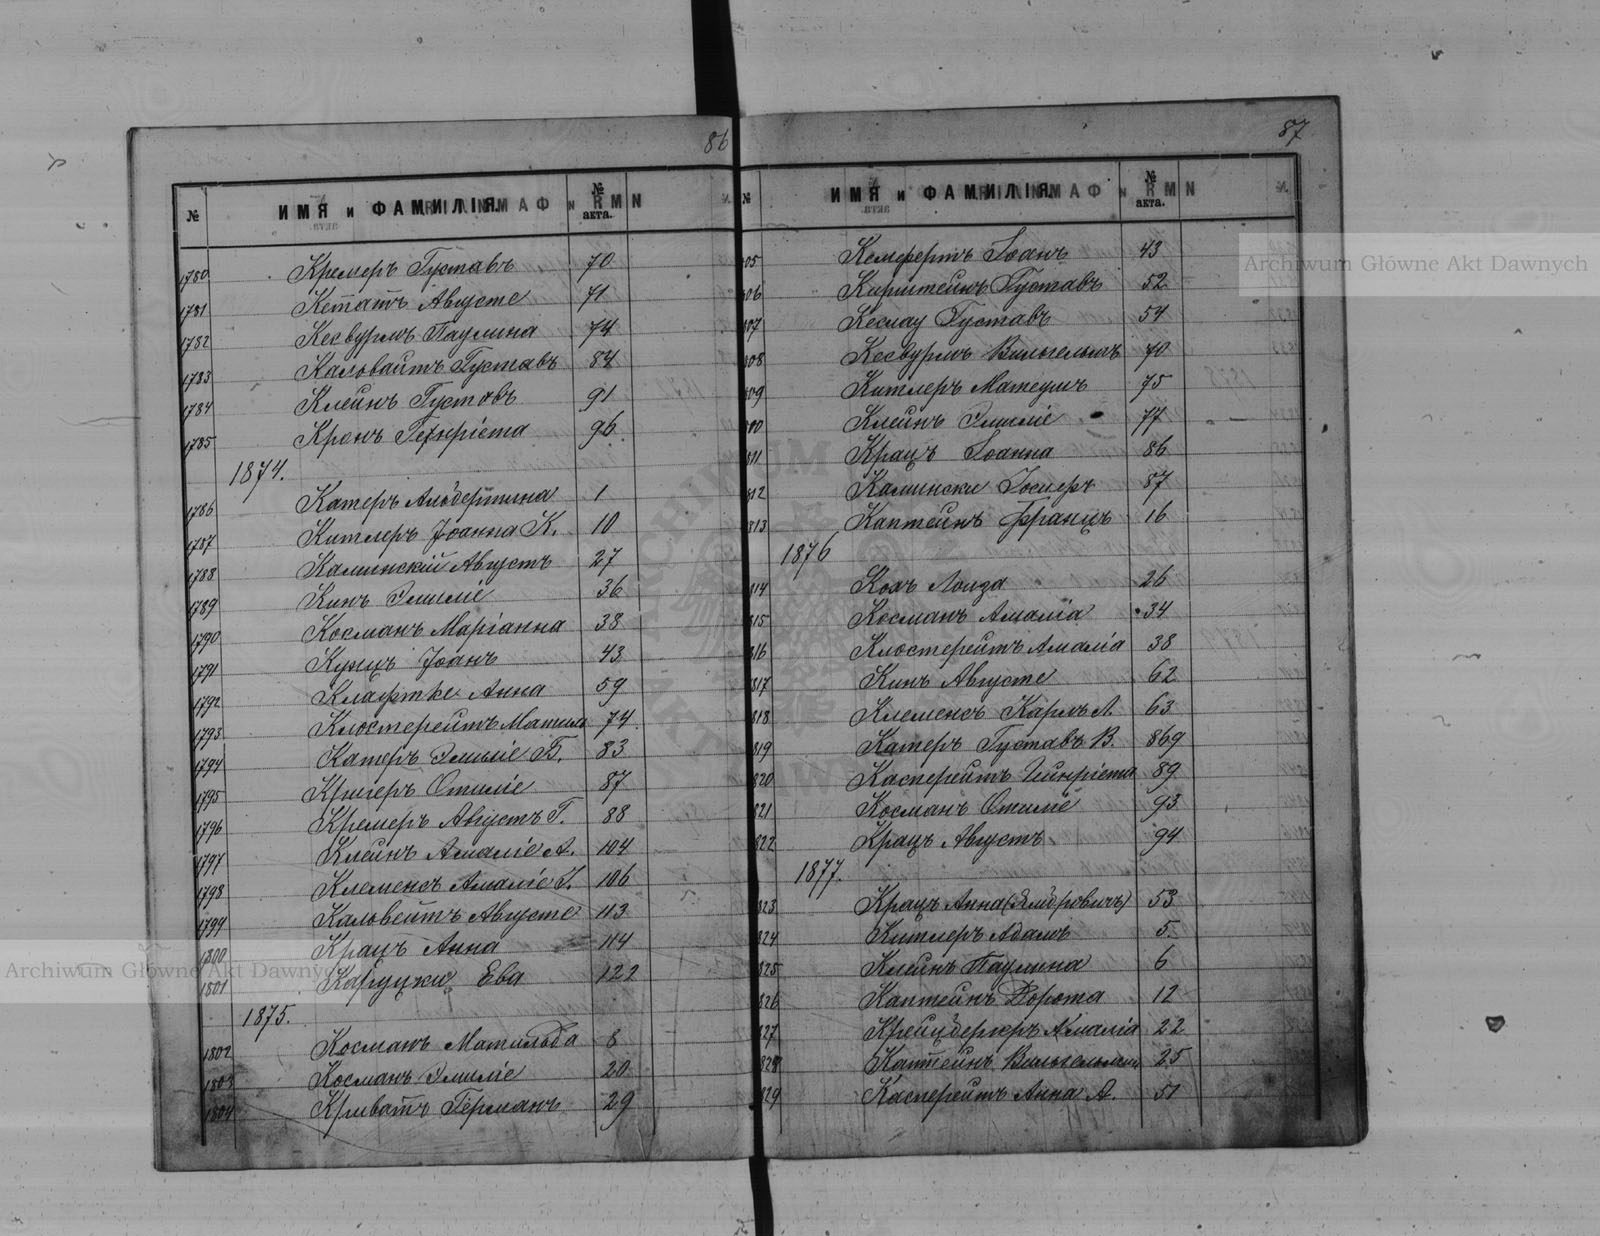 86
№ ИМЯ и ФАМИЛІЯ. № акта.
1780 Кремеръ Густавъ 70
1781 Кетатъ Августе 71
1782 Кесвурмъ Паулина 74
1783 Каловайтъ Густавъ 84
1784 Клейнъ Густавъ 91
1785 Кронъ Генріета 96
1874.
1786 Катеръ Альбертина 1
1787 Китлеръ Јоанна К. 10
1788 Каминскій Августъ 27
1789 Кинъ Эмиліе 36
1790 Косманъ Маріанна 38
1791 Кунцъ Јоанъ 43
1792 Клафтке Анна 59
1793 Клостерейтъ Матил 74
1794 Катеръ Эмиліе Б. 83
1795 Кригеръ Отиліе 87
1796 Кремеръ Августъ Г. 88
1797 Клейнъ Амаліе А. 104
1798 Клеменсъ Амаліе 106
1799 Каловейтъ Августе 113
1800 Крацъ Анна 114
1801 Каруцки Ева 122
1875.
1802 Косманъ Матильда 8
1803 Косманъ Эмиліе 20
1804 Криватъ Германъ 29
87
№ ИМЯ и ФАМИЛІЯ. № акта.
05 Кемфертъ Іоанъ 43
06 Кирштейнъ Густавъ 52
07 Кеслау Густавъ 54
08 Кесвурмъ Вильгельмъ 70
09 Китлеръ Матеушъ 75
810 Клейнъ Эмиліе 77
811 Крацъ Іоанна 86
812 Камински 87
813 Каптейнъ Францъ 16
1876
814 Кохъ Лоиза 26
815 Косманъ Амалія 34
816 Клостерейтъ Амалія 38
817 Кинъ Августе 62
818 Клеменсъ Карлъ Л. 63
819 Катеръ Густавъ В. 869
820 Касперейтъ Гейнріета 89
821 Косманъ Отиліе 93
822 Крацъ Августъ 94
1877.
823 Крацъ Анна 53
824 Китлеръ Адамъ 5.
825 Клейнъ Паулина 6
826 Каптейнъ Дорота 12
827 Крейцбергеръ Амалія 22
828 Каптейнъ 25
829 Касперейтъ Анна А. 51
Archiwum Główne Akt Dawnych
Archiwum Główne Akt Dawnych